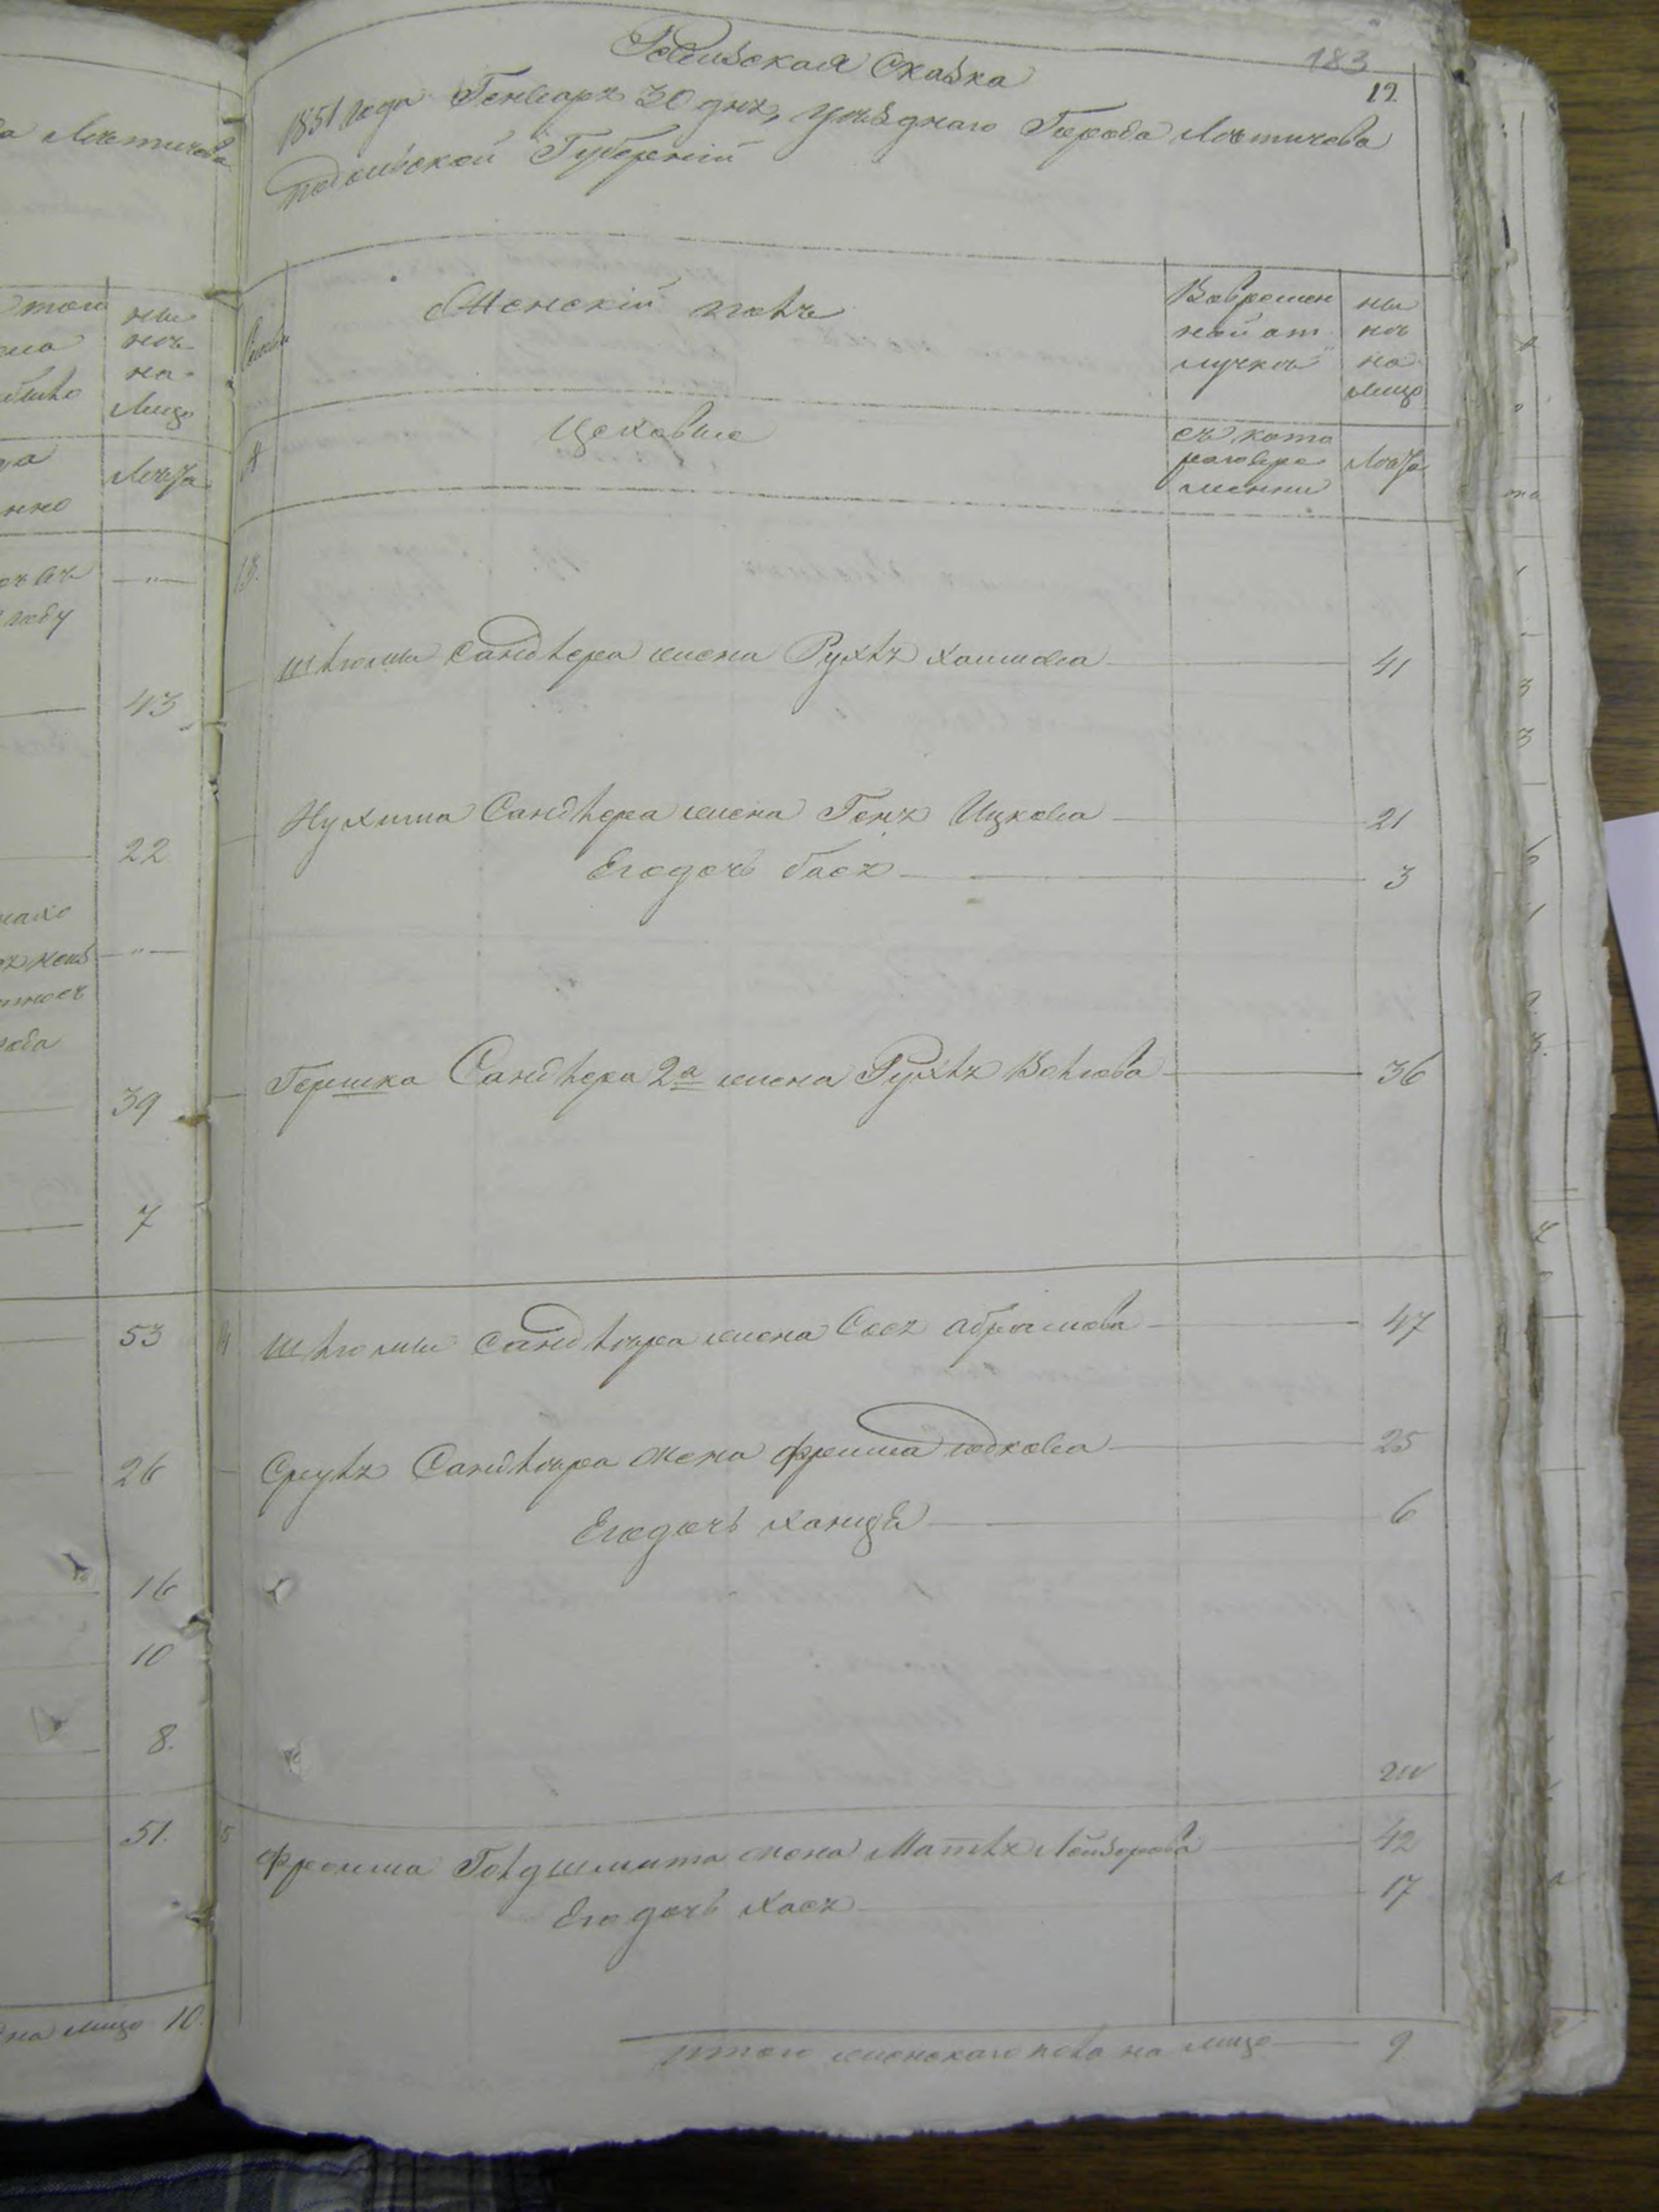 183
12
Ревизская Сказка
1851 года Генваря 30 дня, уезднаго Города Летичева
Подольской Губернiи
Женскiй полъ
Вовремен
ной от
лучке
ны
не
на
лицо
Цеховые
съ кото
раговре
мени
Лета
13.
Шлиомы Сандлера жена Рухля Хаимова 41
Нухима Сандлера жена Геня Ицкова 21
Егодочь Бася 3
Гершка Сандлера 2а жена Рухля Волкова 36
Шлиомы Сандлера жена Сося Абрамова 47
Сруля Сандлера жена Фрима Иоскова 25
Егодочь Ханця 6
Фроима Голдшмита жена Матля Лейзорова 42
Его дочь Хася 17
Итого женскаго пола на лицо 9
а Летичева
ны
не
на
Лицо
Лета
43
22
39
7
53
26
16
10
8.
51.
на лицо 10.